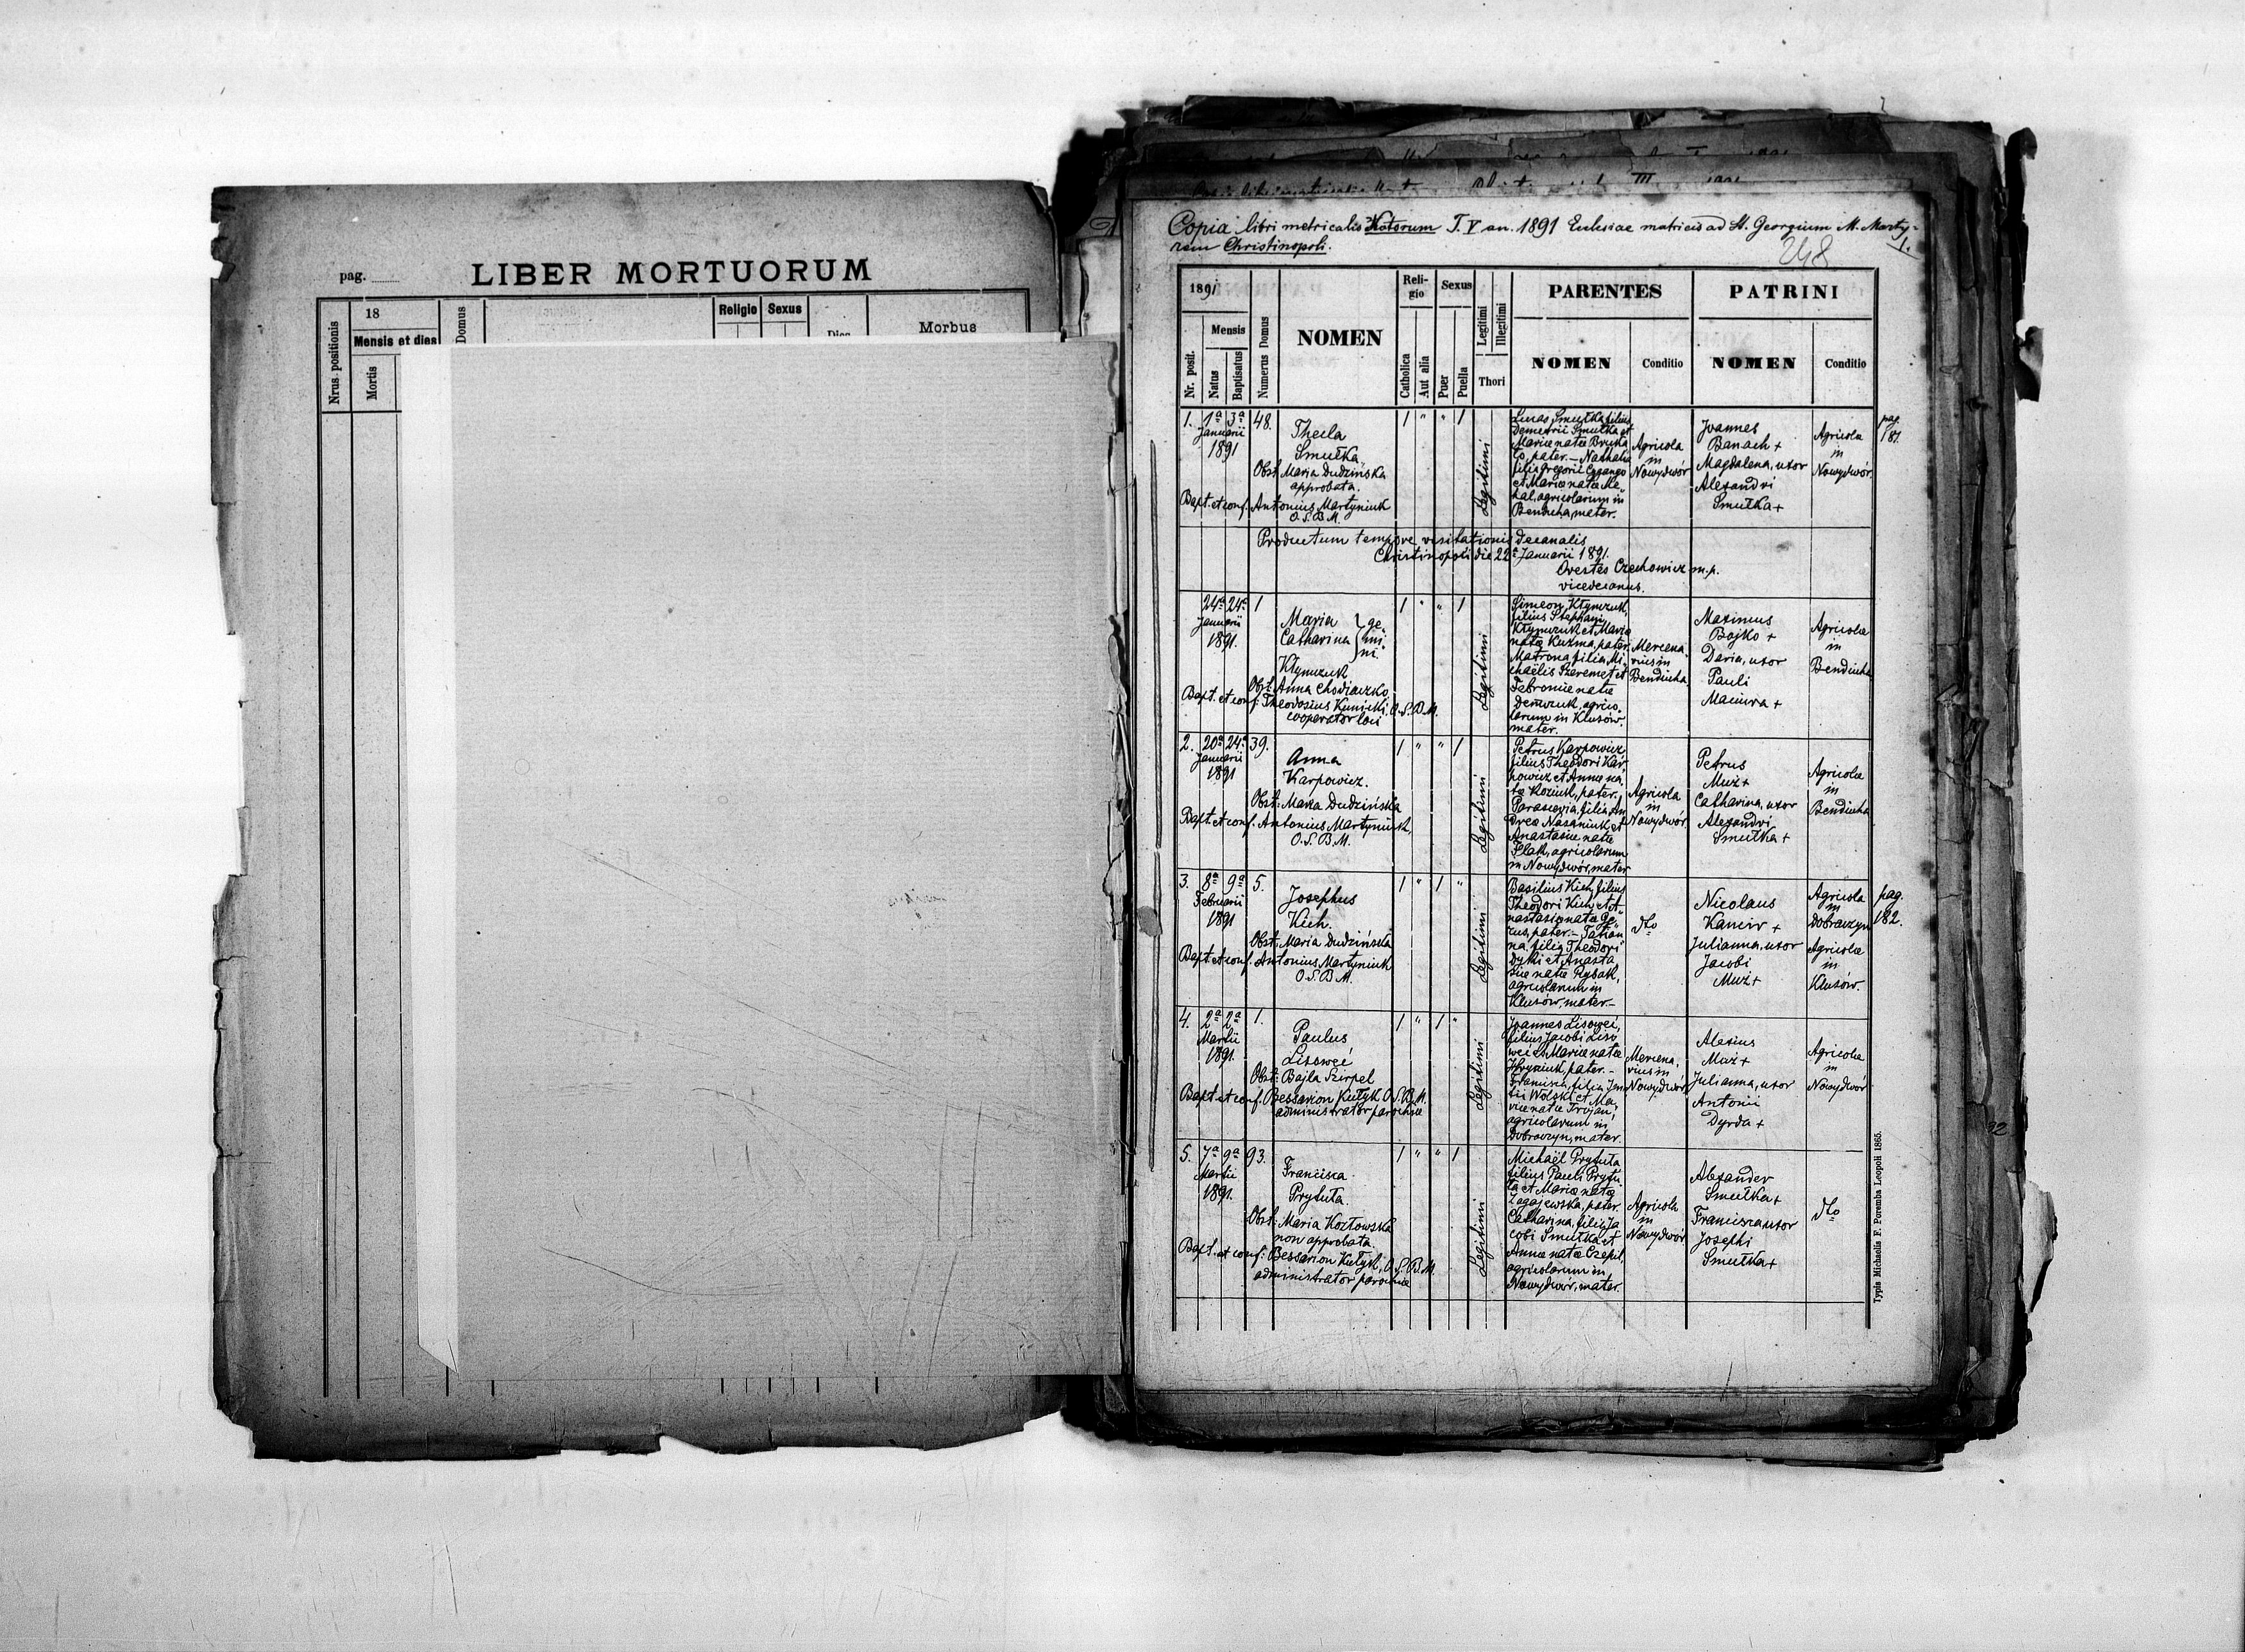 pag.
LIBER MORTUORUM
Nrus positionis
18
Mensis et dies
Mortis
Domus
Religio
Sexus
Morbus
Copia libri metricalis Natorum T. V an. 1891 Ecclesiae matricis ad St. Georgium M. Marty-
rem Christinopoli.
1.
248
1891
Nr. posit.
Mensis
Natus
Baptisatus
Numerus Domus
NOMEN
Reli-
gio
Catholica
Aut alia
Sexus
Puer
Puella
Legitimi
Illegitimi
Thori
PARENTES
NOMEN
Conditio
PATRINI
NOMEN
Conditio
1. 1ª 3ª 48.
Januarii
1891
Thecla
Smutka
Obst. Maria Dudzińska
approbata.
Bapt. et conf. Antonius Martyniuk
O. S. B. M.
1 " " 1
Legitimi
Lucas Smutka filius
Demetrii Smutka et
Mariae natae
pater. – Nathalia
filia Gregorii
et Mariae natae
agricolarum in
Benduha, mater.
Agricola
in
Nowydwór
Joannes
Banach +
Magdalena, uxor
Alexandri
Smutka +
Agricola
in
Nowydwór.
pag.
181.
Productum tempore visitationis decanalis
Christinopoli die 22ª Januarii 1891.
Orestes Czechowicz m. p.
vicedecanus.
24ª 24ª 1
Januarii
1891.
Maria
Catharina
ge-
mi-
ni.
Kłymczuk
Obst. Anna
Bapt. et conf: Theodosius Kunicki, O. S. B. M.
cooperator loci
1 " " 1
Legitimi
Simeon Kłymczuk,
filius Stephani
Kłymczuk et Mariae
natae Kuzma, pater.
Matrona, filia Mi-
chaëlis Szeremet et
Febroniae natae
Demczuk, agrico-
larum in Klusów,
mater.
Mercena-
rius in
Benduha.
Maximus
Bojko +
Daria, uxor
Pauli
+
Agricolae
in
Benduha
2. 20ª 24ª 39.
Januarii
1891
Anna
Karpowicz.
Obst: Maria Dudzińska
Bapt. et conf. Antonius Martyniuk,
O. S. B. M.
1 " " 1
Legitimi
Petrus Karpowicz
filius Theodori Kar-
powicz et Annae na-
tae Koziuk, pater.
Parascevia, filia An-
dreae Nasaniuk et
Anastasiae natae
agricolarum
in Nowydwór, mater
Agricola
in
Nowydwór.
Petrus
Muz +
Catharina, uxor
Alexandri
Smutka +
Agricolae
in
Benduha
3. 8ª 9ª 5.
Februarii
1891
Josephus
Kich.
Obst: Maria Dudzińska
Bapt. et conf. Antonius Martyniuk
O. S. B. M.
1 " 1 "
Legitimi
Basilius Kich, filius
Theodori Kich, et A-
nastasiae natae Ge-
rus, pater. – Tatian-
na, filia Theodori
Dyki et Anasta-
siae natae Rybak,
agricolarum in
Klusów, mater. –
dto
Nicolaus
+
Julianna, uxor
Jacobi
Muz +
Agricola
in
Dobraczyn
Agricola
in
Klusów.
pag.
182.
4. 2ª 2ª 1.
Martii
1891.
Paulus
Lisowei
Obst: Bajla Szirpel
Bapt. et conf. Bessarion Kułyk O. S. B. M.
administrator parochiae
1 " 1 "
Legitimi
Joannes Lisowei,
filius Jacobi Liso-
wei et Mariae natae
Hryciuk, pater. –
Francisca, filia
Wolski et Ma-
riae natae Trojan,
agricolarum in
Dobraczyn, mater.
Mercena-
rius in
Nowydwór
Alexius
Muz +
Julianna, uxor
Antonii
Dyrda +
Agricolae
in
Nowydwór
5. 7ª 9ª 93.
Martii
1891.
Francisca
Prytuła.
Obst: Maria Kozłowska
non approbata
Bapt. et conf: Bessarion Kułyk, O. S. B. M.
administrator parochiae
1 " " 1
Legitimi
Michaël Prytuła
filius Pauli Prytu-
ła et Mariae natae
Zagajewska, pater.
Catharina, filia Ja-
cobi Smutka et
Annae natae Czepil,
agricolarum in
Nowydwór, mater.
Agricola
in
Nowydwór
Alexander
Smutka +
Francisca uxor
Josephi
Smutka +
dto
Typis Michaelis F. Poremba Leopoli 1865.